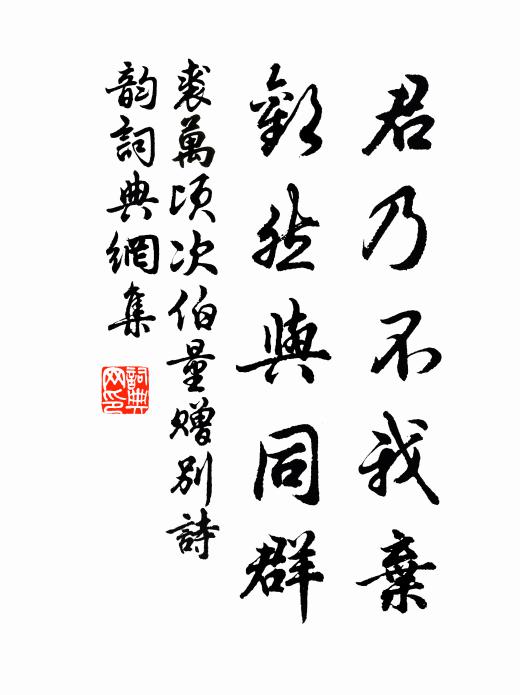 君乃不我棄
歡然與同群
裘萬頃次伯量贈別詩
韵詞典網集
詞典网印